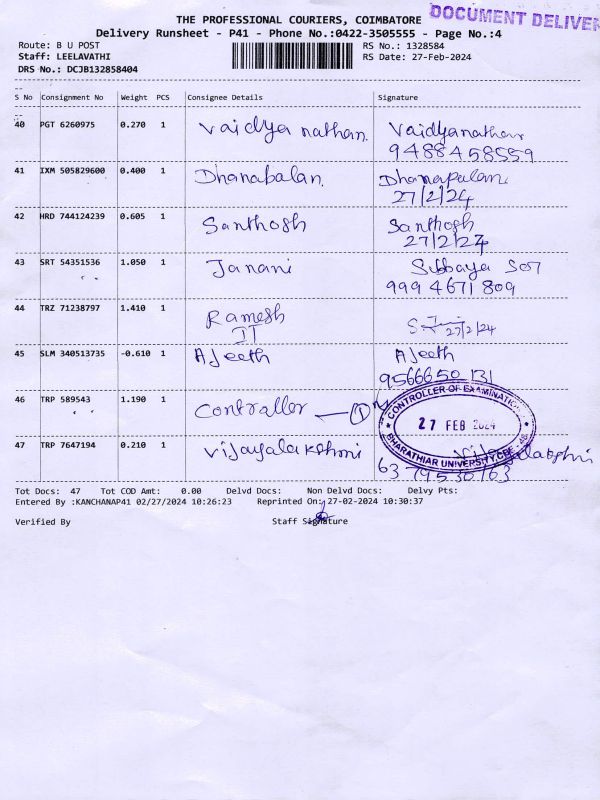 THE PROFESSIONAL COURIERS, COIMBATORE
DOCUMENT DELIVER
Delivery Runsheet - P41 - Phone No.:0422-3505555 - Page No.:4
Route: B U POST
RS No.: 1328584
Staff: LEELAVATHI
RS Date: 27-Feb-2024
DRS No.: DCJB132858404
S No Consignment No Weight PCS Consignee Details Signature
40 PGT 6260975 0.270 1 Vaidya nathan. Vaidyanathan
9488458559
41 IXM 505829600 0.400 1 Dhanabalan. Dhanapalan
27/2/24
42 HRD 744124239 0.605 1 Santhosh Santhosh
27/2/24
43 SRT 54351536 1.050 1 Janani
999 4671 809
44 TRZ 71238797 1.410 1 Ramesh
IT
27/2/24
45 SLM 340513735 -0.610 1 AJeeth AJeeth
9566650131
46 TRP 589543 1.190 1 Controller — 1
CONTROLLER OF EXAMINATIONS
27 FEB 2024
BHARATHIAR UNIVERSITY, CBE - 46.
47 TRP 7647194 0.210 1 Vijayalakshmi Vijayalakshmi
63 79530763
Tot Docs: 47 Tot COD Amt: 0.00 Delvd Docs: Non Delvd Docs: Delvy Pts:
Entered By :KANCHANAP41 02/27/2024 10:26:23 Reprinted On: 27-02-2024 10:30:37
Verified By Staff Signature